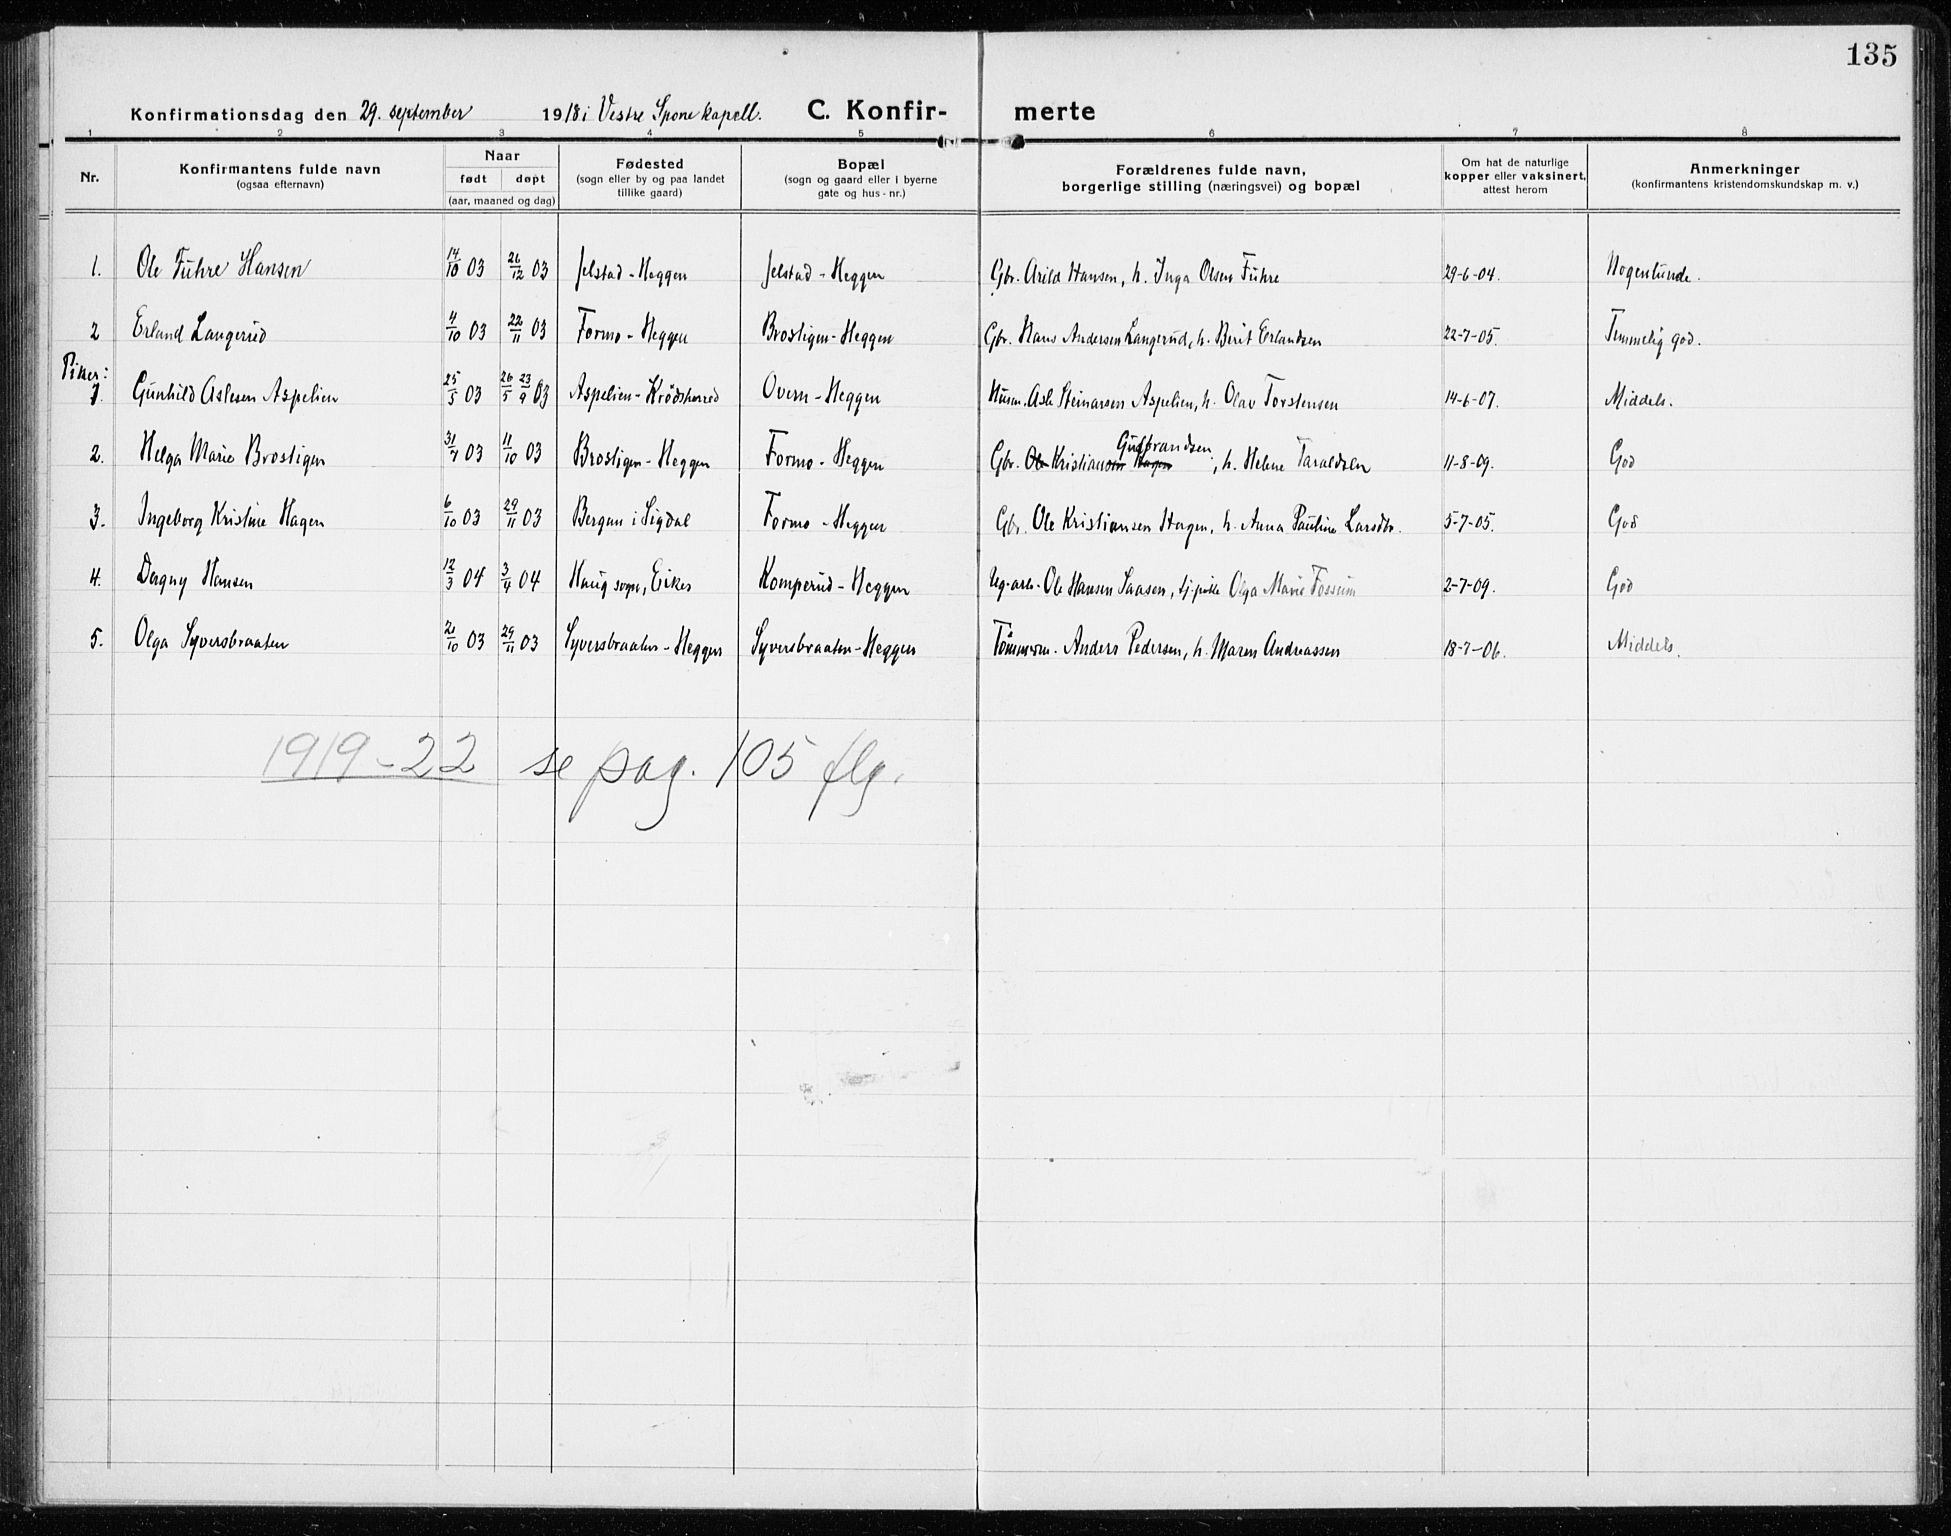 135
Konfirmationsdag den 29. september 1918 i Vestre Spone kapell. C. Konfir- merte
1 2 3 4 5 6 7 8
Nr. Konfirmantens fulde navn (ogsaa efternavn) Naar født døpt (aar, maaned og dag) Fødested (sogn eller by og paa landet tillike gaard) Bopæl (sogn og gaard eller i byerne gate og hus-nr.) Forældrenes fulde navn, borgerlige stilling (næringsvei) og bopæl Om hat de naturlige kopper eller vaksinert, attest herom Anmerkninger (konfirmantens kristendomskundskap m. v.)
1. Ole Fuhre Hansen 14/10 03 26/12 03 Jelstad - Heggen Jelstad - Heggen Gbr. Arild Hansen, h. Inga Olsen Fuhre 29-6-04. Nogenlunde.
2 Erland Langerud 4/10 03 22/11 03 Formo - Heggen Brostigen - Heggen Gbr. Hans Andersen Langerud, h. Berit Erlandsen 22-7-05. Temmelig god.
Piker:
1. Gunhild Aslesen Aspelien 25/5 03 26/5 23/9 03 Aspelien - Krødsherred Overn - Heggen Husm. Asle Steinarsen Aspelien, h. Olav Torstensen 14-6-07. Middels.
2. Helga Marie Brostigen 31/7 03 11/10 03 Brostigen - Heggen Formo - Heggen Gbr. Ole Kristiansen Hagen Gulbrandsen, h. Helene Taraldsen 11-8-09. God
3. Ingeborg Kristine Hagen 6/10 03 29/11 03 Bergan i Sigdal Formo - Heggen Gbr. Ole Kristiansen Hagen, h. Anna Pauline Larsdtr. 5-7-05. God
4. Dagny Hansen 12/3 04 3/4 04 Haug sogn, Eiker Komperud - Heggen Ug. arb. Ole Hansen Saasen, tj. pike Olga Marie Fossum 2-7-09. God
5. Olga Syversbraaten 2/10 03 29/11 03 Syversbraaten - Heggen Syversbraaten - Heggen Tømmerm. Anders Pedersen, h. Maren Andreassen 18-7-06. Middels.
1919-22 se pag. 105 flg.